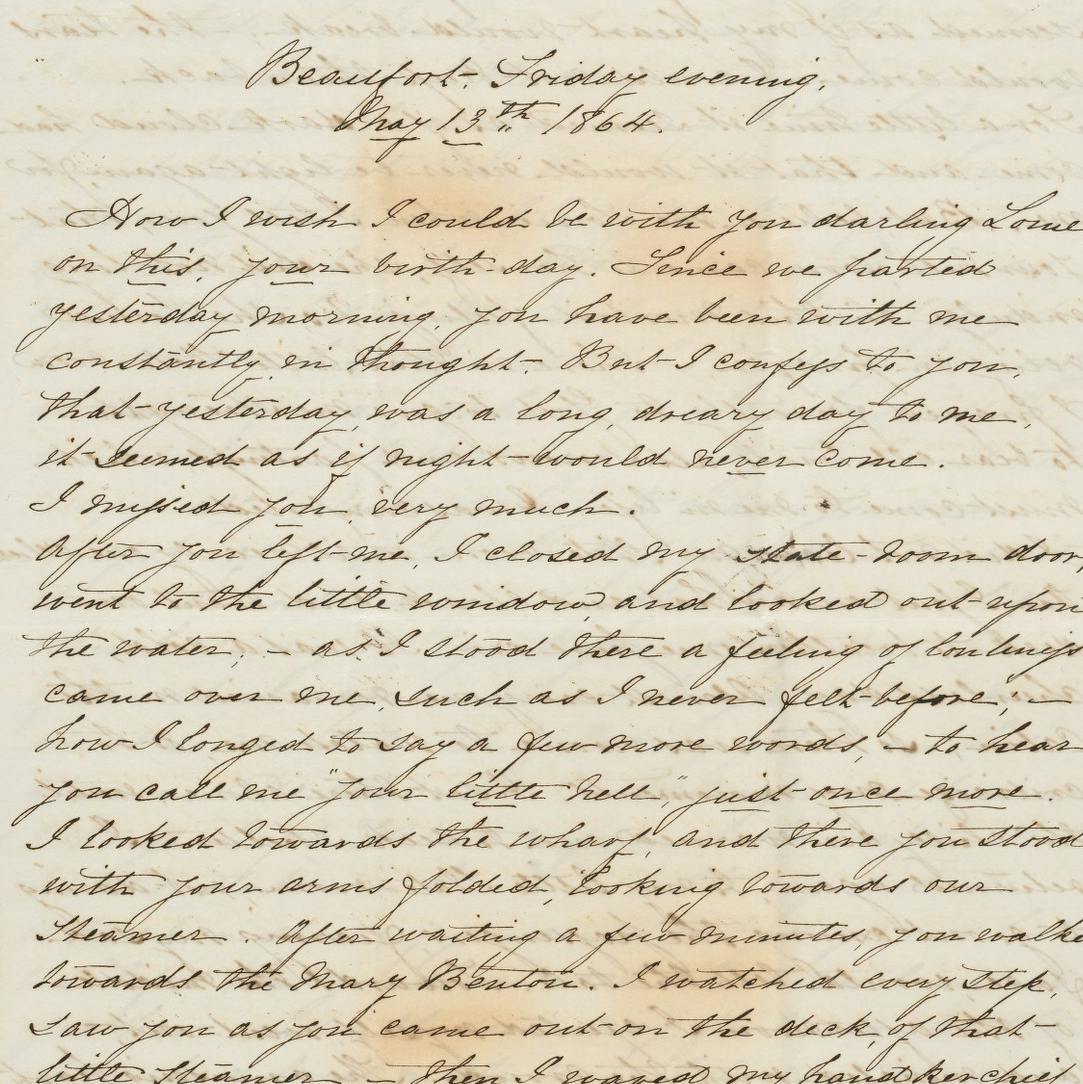 Beaufort. Friday evening.
May 13th 1864.
How I wish I could be with you darling
on this, your birth-day. Since we parted
yesterday morning, you have been with me
constantly in thought. But I confess to you,
that yesterday, was a long, dreary day to me,
it seemed as if night would never come.
I missed you, very much.
After you left me, I closed my state-room door,
went to the little window, and looked out upon
the water; – as I stood there a feeling of
came over me, such as I never felt before; –
how I longed to say a few more words, – to hear
you call me "your little Nell", just once more.
I looked towards the wharf, and there you stood
with your arms folded, looking towards our
Steamer. After waiting a few minutes, you
towards the Mary Benton. I watched every step,
saw you as you came out on the deck, of that
little Steamer – then I waved my handkerchief